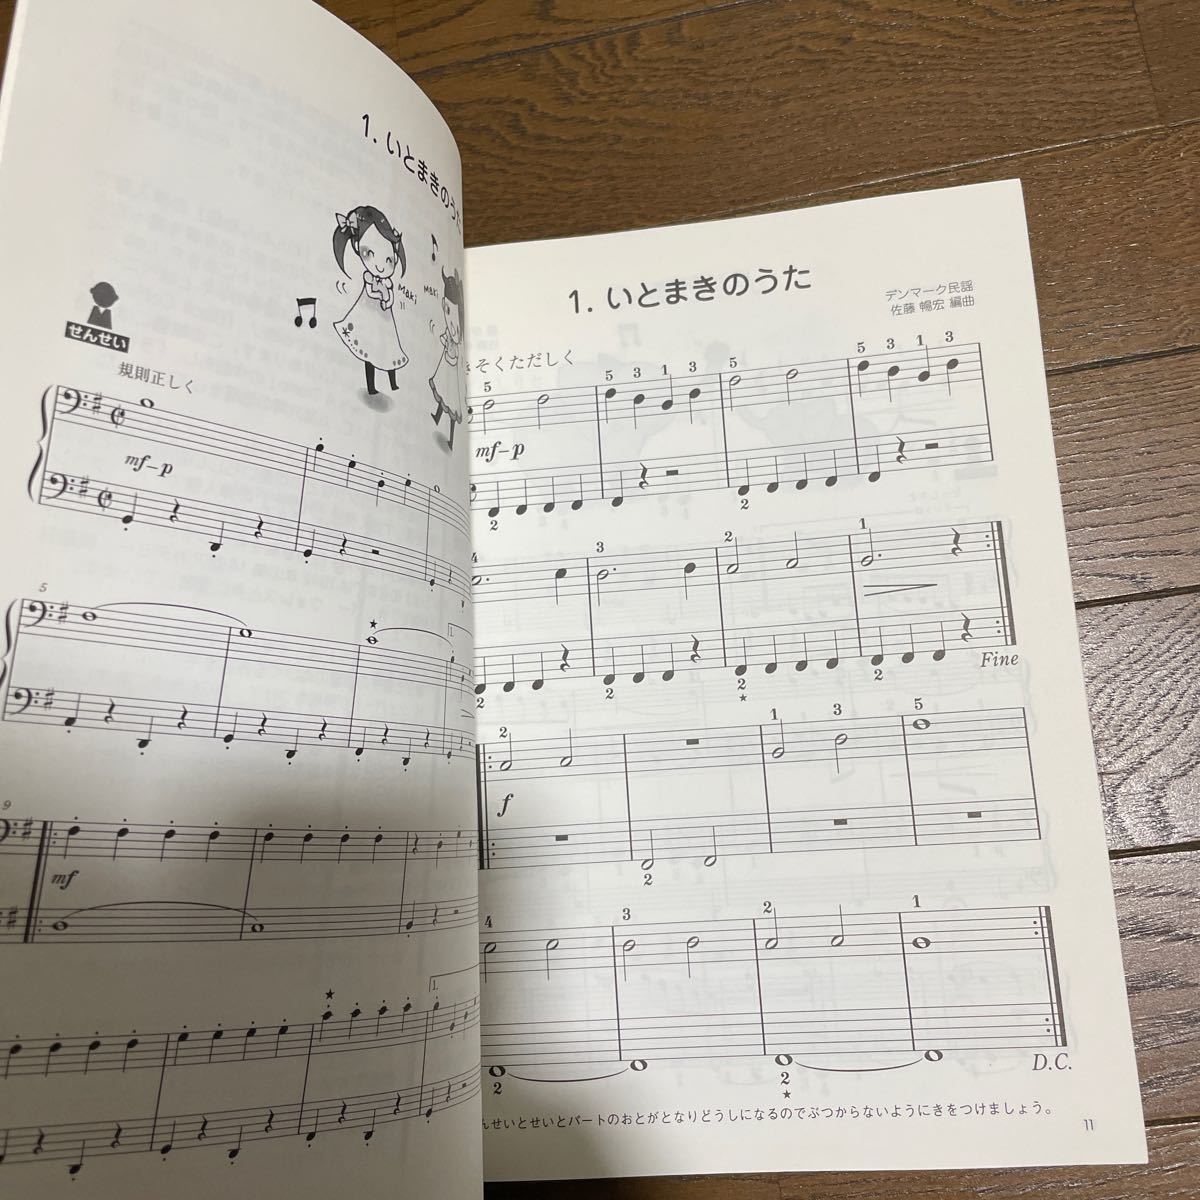 1. いとまきのうた
Maki
Maki
せんせい
規則正しく
mf-p
5
1.
9
mf
1.
1. いとまきのうた
デンマーク民謡
佐藤 暢宏 編曲
きそくただしく
5 5 3 1 3 5 5 3 1 3
mf-p
2 2
4 3 2 1
2 2 2 2
Fine
2 1 3 5
f
2
4 3 2 1
2 2
D.C.
んせいとせいとパートのおとがとなりどうしになるのでぶつからないようにきをつけましょう。
11